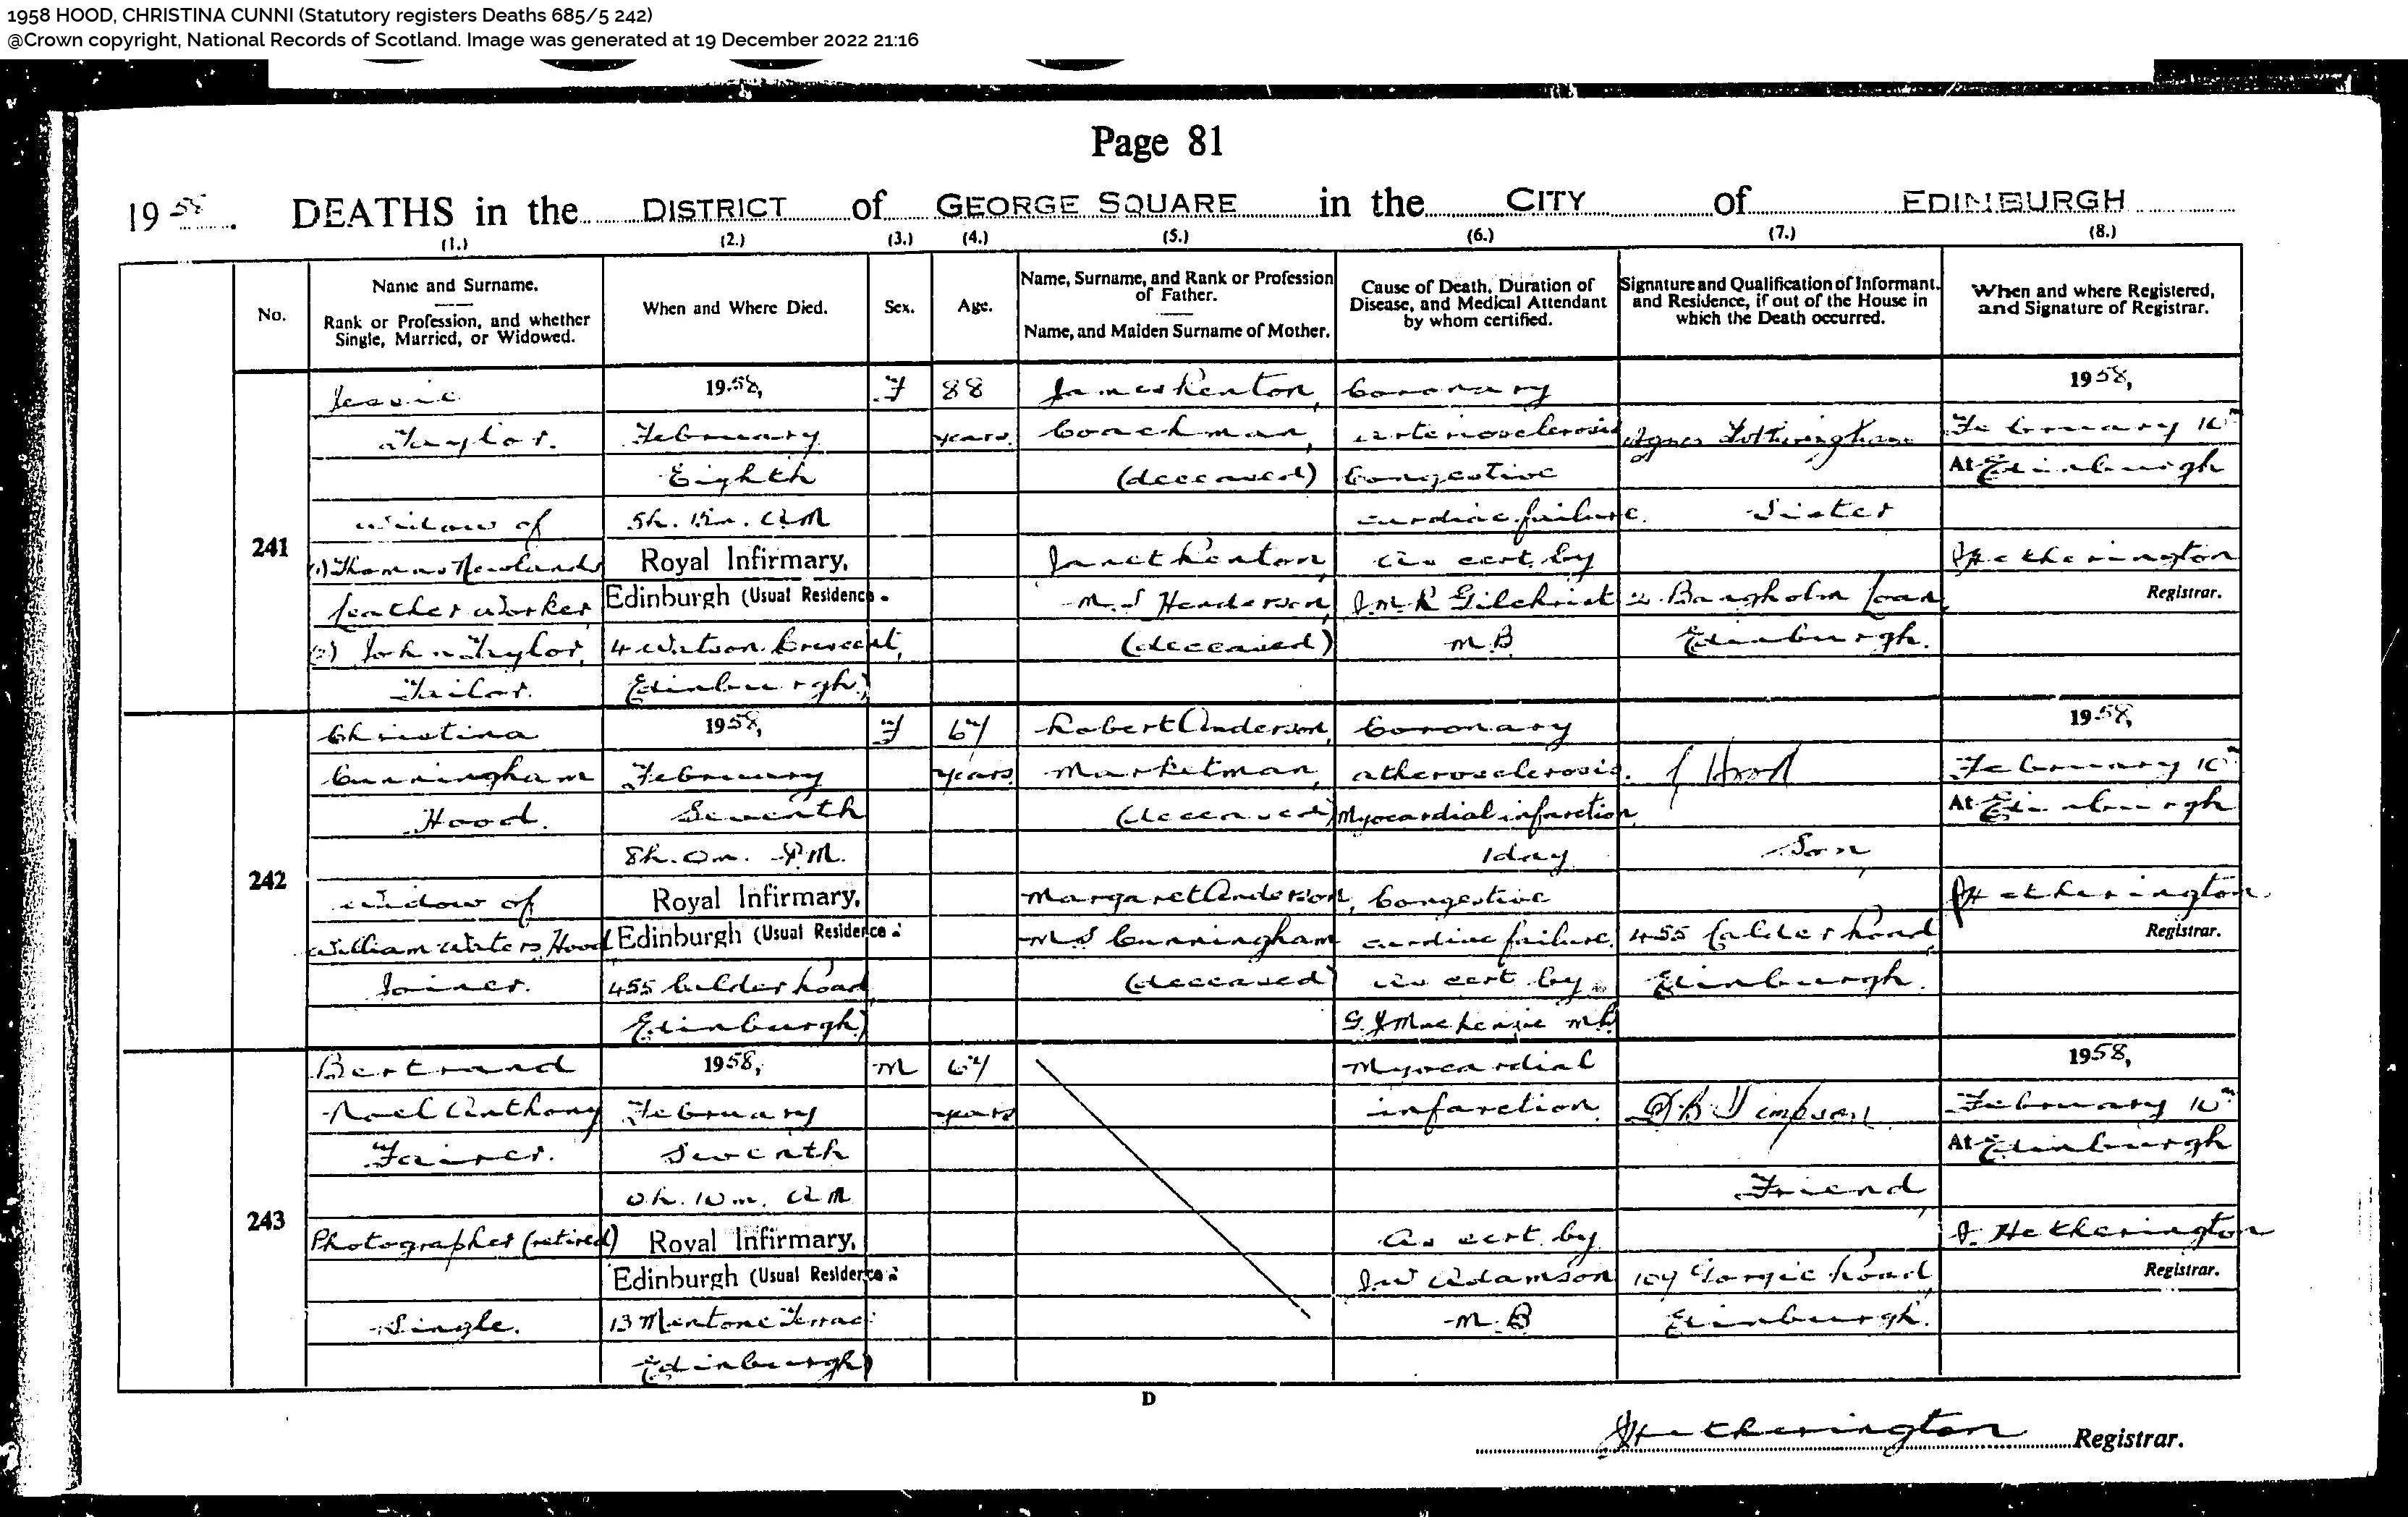 1958 HOOD, CHRISTINA CUNNI (Statutory registers Deaths 685/5 242)
@Crown copyright, National Records of Scotland. Image was generated at 19 December 2022 21:16
Page 81
1958. DEATHS in the DISTRICT of GEORGE SQUARE in the CITY of EDINBURGH
(1.) (2.) (3.) (4.) (5.) (6.) (7.) (8.)
No.
Name and Surname.
Rank or Profession, and whether
Single, Married, or Widowed.
When and Where Died.
Sex.
Age.
Name, Surname, and Rank or Profession
of Father.
Name, and Maiden Surname of Mother.
Cause of Death, Duration of
Disease, and Medical Attendant
by whom certified.
Signature and Qualification of Informant,
and Residence, if out of the House in
which the Death occurred.
When and where Registered,
and Signature of Registrar.
241
Jessie
Taylor.
widow of
(1) Thomas Newlands
leather worker,
(2) John Taylor,
Tailor.
1958,
February
Eighth
5h. 15m. AM
Royal Infirmary,
Edinburgh (Usual Residence.
4 Watson Crescent,
Edinburgh)
F
88
years.
James Renton,
Coachman,
(deceased)
Janet Renton,
M.S Henderson,
(deceased)
Coronary
arteriosclerosis
Congestive
cardiac failure.
As cert. by
J.M.R Gilchrist
M.B.
Agnes Fotheringham
Sister
2 Bangholm Loan,
Edinburgh.
1958,
February 10th
At Edinburgh
J Hetherington
Registrar.
242
Christina
Cunningham
Hood.
widow of
William Waters Hood
Joiner.
1958,
February
Seventh
8h. 0m. P.M.
Royal Infirmary,
Edinburgh (Usual Residence:
455 Calder Road,
Edinburgh)
F
67
years
Robert Anderson,
Marketman,
(deceased)
Margaret Anderson,
M.S Cunningham
(deceased)
Coronary
atherosclerosis.
Myocardial infarction,
1 day
Congestive
cardiac failure.
As cert. by
G. J Mackenzie M.B.
J Hood
Son,
455 Calder Road,
Edinburgh.
1958,
February 10th
At Edinburgh
J Hetherington
Registrar.
243
Bertrand
Noel Anthony
Fairer.
Photographer (retired)
Single.
1958,
February
Seventh
0h. 10m. AM
Royal Infirmary,
Edinburgh (Usual Residence:
13 Mentone Terrace
Edinburgh)
M
67
years
Myocardial
infarction.
As cert. by
J.W Adamson
M.B
D.B Simpson
Friend,
107 Gorgie Road,
Edinburgh.
1958,
February 10th
At Edinburgh
J. Hetherington
Registrar.
D
J Hetherington Registrar.